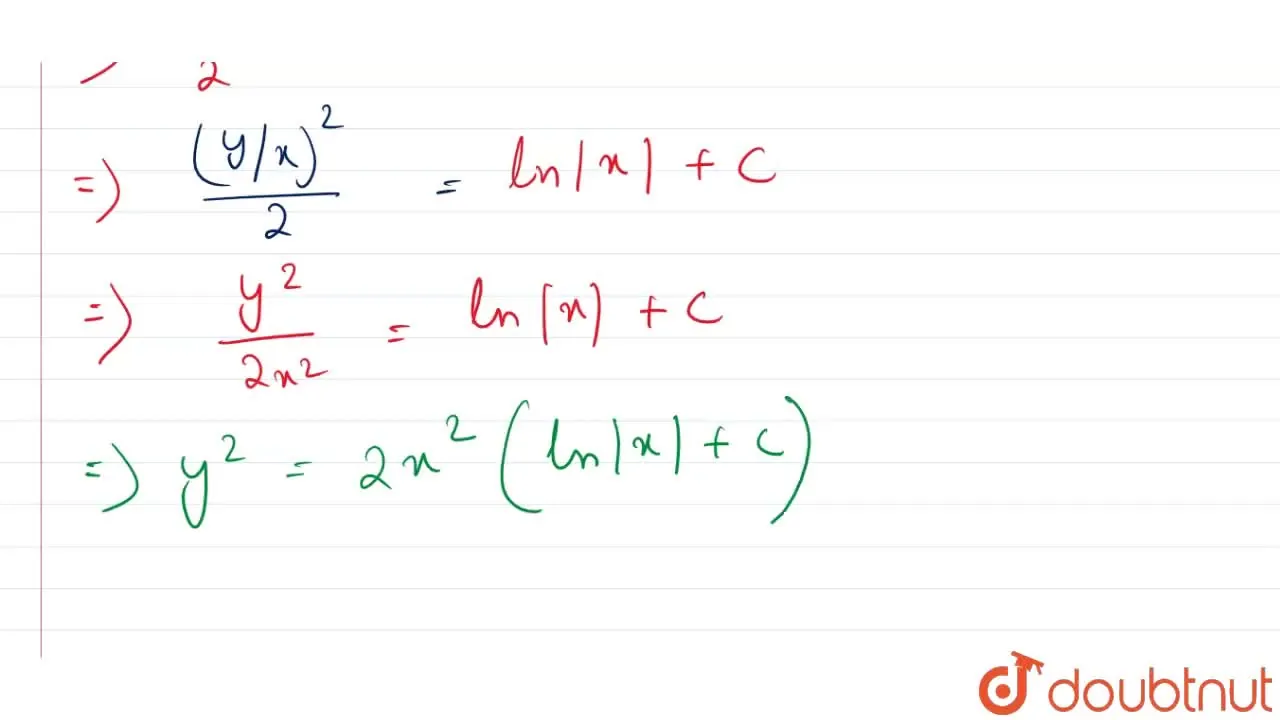 2
=> (y/x)^2 / 2 = ln|x| + C
=> y^2 / 2x^2 = ln|x| + C
=> y^2 = 2x^2 (ln|x| + C)
doubtnut